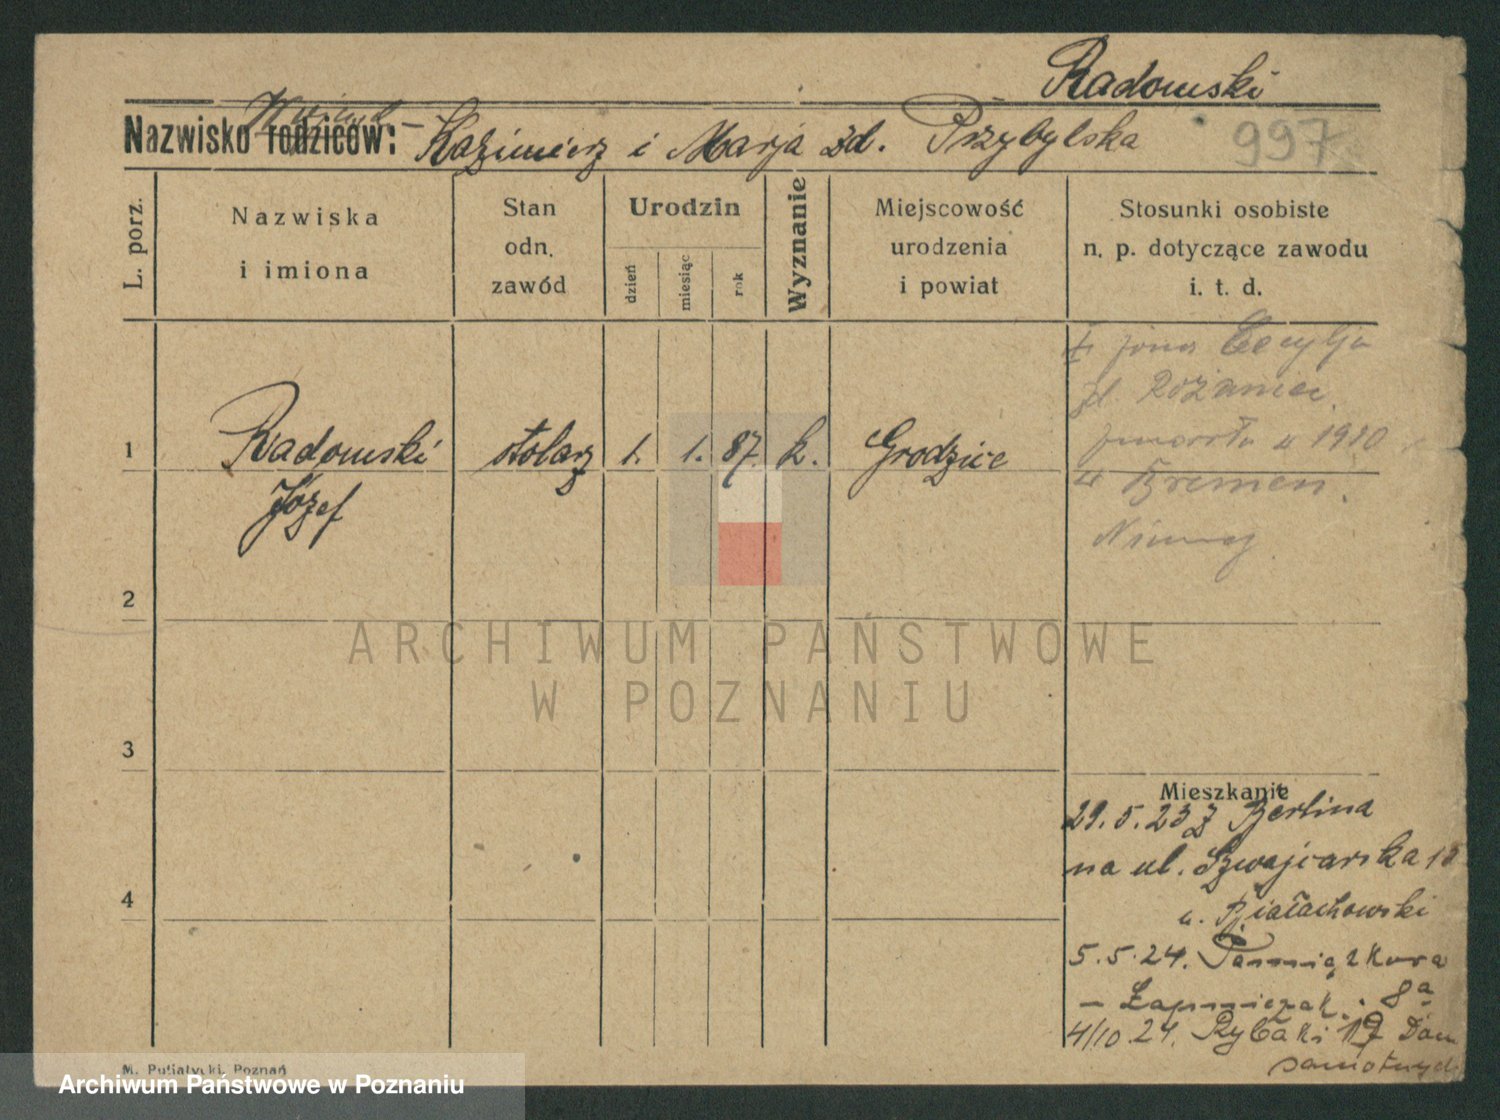 Radomski
Nazwisko rodziców: Kazimierz i Marja zd. Przybylska
997
L. porz.
Nazwiska
i imiona
Stan
odn.
zawód
Urodzin
dzień
miesiąc
rok
Wyznanie
Miejscowość
urodzenia
i powiat
Stosunki osobiste
n. p. dotyczące zawodu
i. t. d.
żona Cecylja
zd. Rożaniec
zmarła w 1920
w Bremen.
1
Radomski
Józef
stolarz
1.
1.
87.
k.
Grodzice
2
3
4
ARCHIWUM PAŃSTWOWE
W POZNANIU
Mieszkanie
29.5.23 z Berlina
na ul. Szwajcarska
u. Białachowski
5.5.24.
8a
4/10.24. Rybaki 17 Dom
samotnych
M. Putiatycki, Poznań
Archiwum Państwowe w Poznaniu